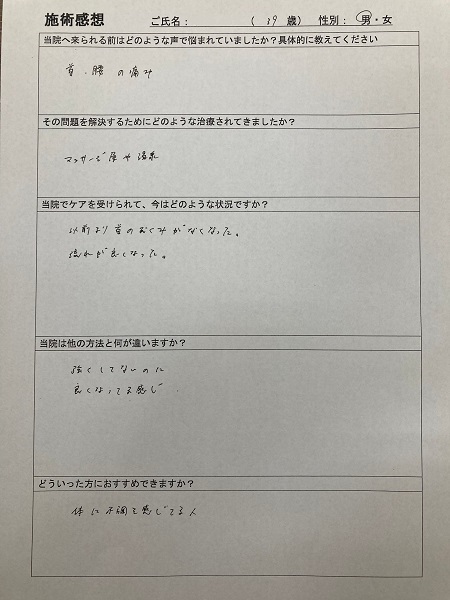 施術感想 ご氏名： （ 39 歳） 性別： 男・女
当院へ来られる前はどのような声で悩まれていましたか？具体的に教えてください
首、腰 の痛み
その問題を解決するためにどのような治療されてきましたか？
マッサージ店や温泉
当院でケアを受けられて、今はどのような状況ですか？
以前より首のむくみがなくなった。
流れが良くなった。
当院は他の方法と何が違いますか？
強くしてないのに
良くなってる感じ
どういった方におすすめできますか？
体に不調を感じてる人